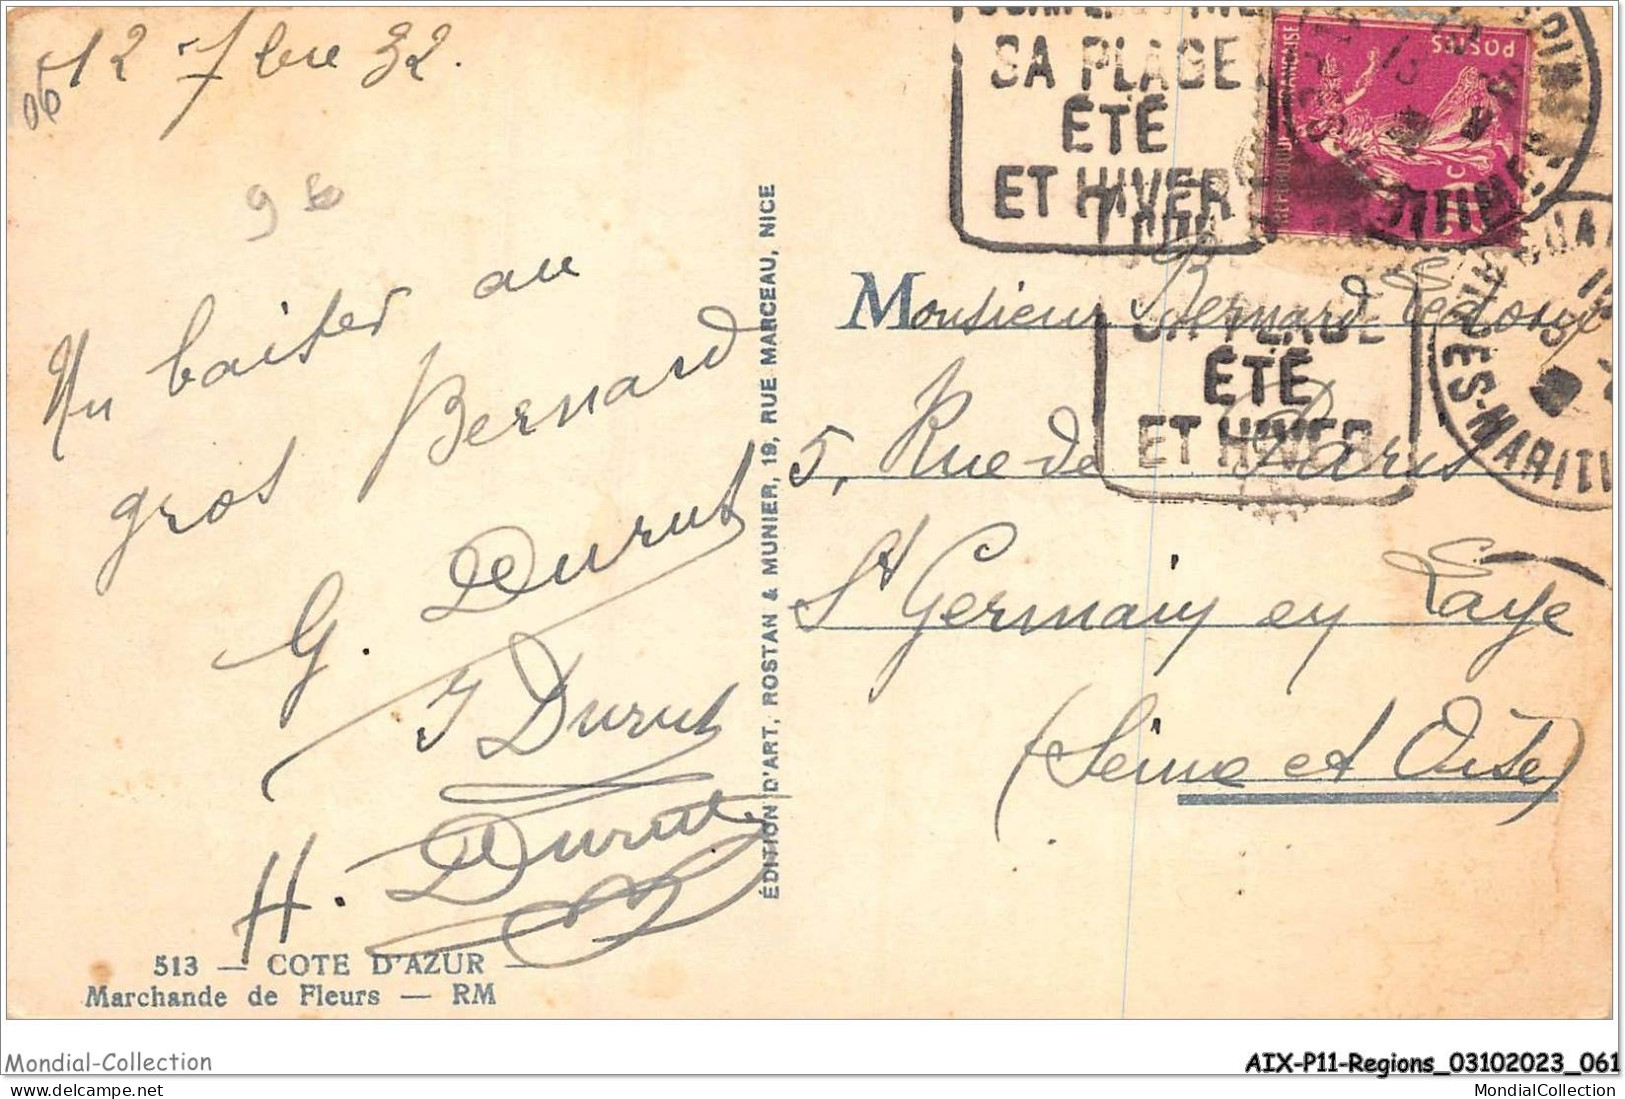 12 7bre 32.
06
Un baiser au
gros Bernard
G. Durut
J Durut
H. Durut
513 — COTE D'AZUR —
Marchande de Fleurs — RM
ÉDITION D'ART, ROSTAN & MUNIER, 19, RUE MARCEAU, NICE
SA PLAGE
ÉTÉ
ET HIVER
POSTES
SA PLAGE
ÉTÉ
ET HIVER
Monsieur Bernard
5, Rue de Paris
St Germain en Laye
(Seine et Oise)
Mondial-Collection
AIX-P11-Regions_03102023_061
MondialCollection